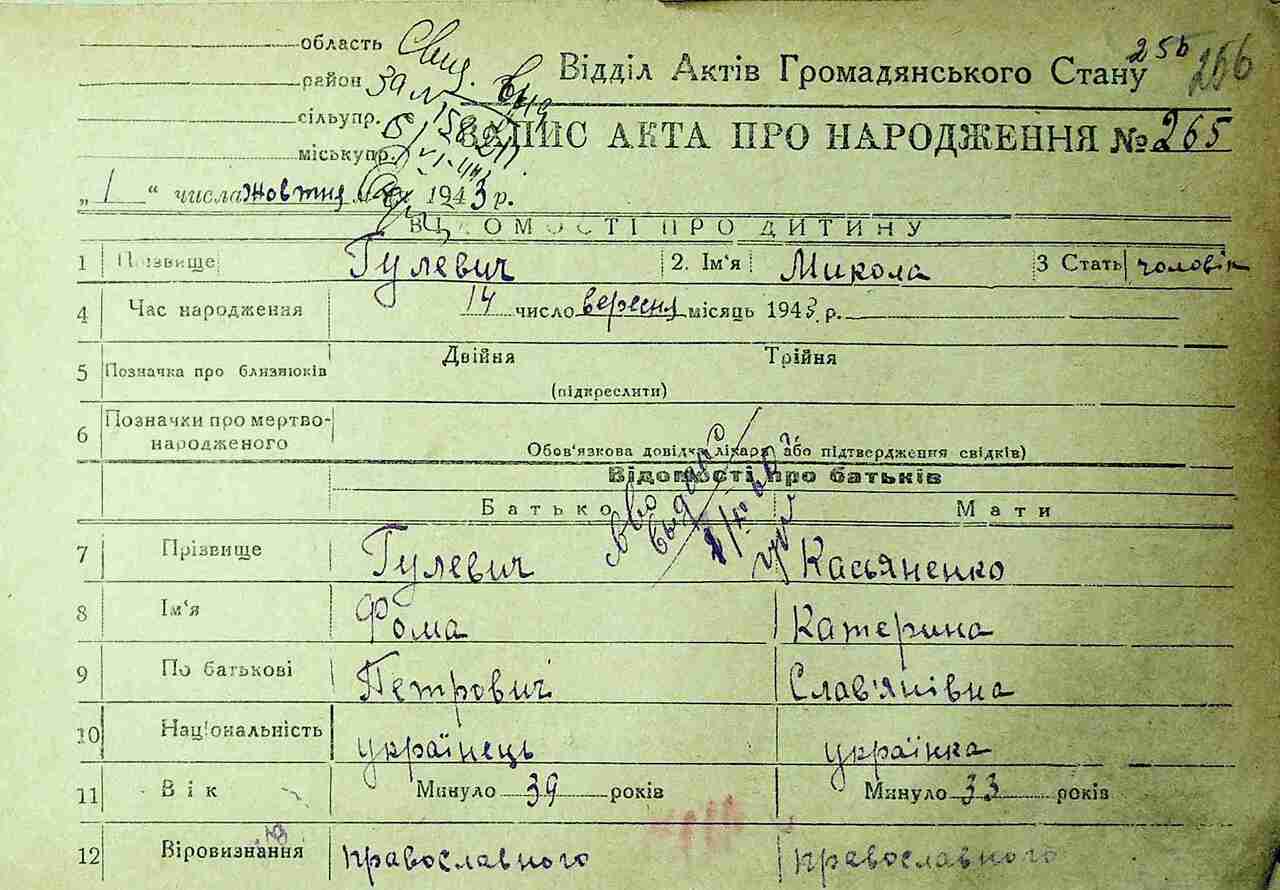 область
район
сільупр.
міськупр.
Відділ Актів Громадянського Стану
256
256
ЗАПИС АКТА ПРО НАРОДЖЕННЯ № 265
„ 1 “ числа жовтня 1943 р.
ВІДОМОСТІ ПРО ДИТИНУ
1 Прізвище Гулевич 2. Ім'я Микола 3 Стать чоловік
4 Час народження 14 число вересня місяць 1943 р.
5 Позначка про близнюків Двійня Трійня
(підкреслити)
6 Позначки про мертво-
народженого
Обов'язкова довідка лікаря або підтвердження свідків)
Відомості про батьків
Батько Мати
7 Прізвище Гулевич Касьяненко
8 Ім'я Фома Катерина
9 По батькові Петрович Слав'янівна
10 Національність українець українка
11 Вік Минуло 39 років Минуло 33 років
12 Віровизнання православного православного